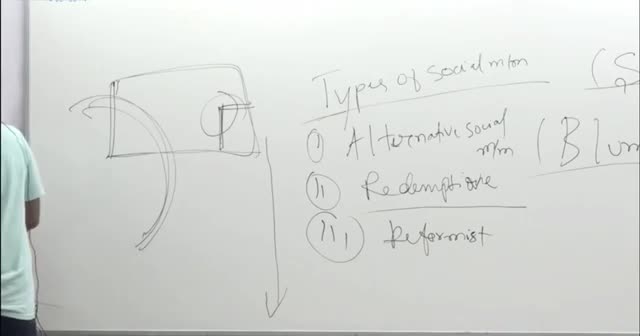 Types of social m/m (S
i) Alternative social
m/m (Blum
ii) Redemptive
iii) Reformist